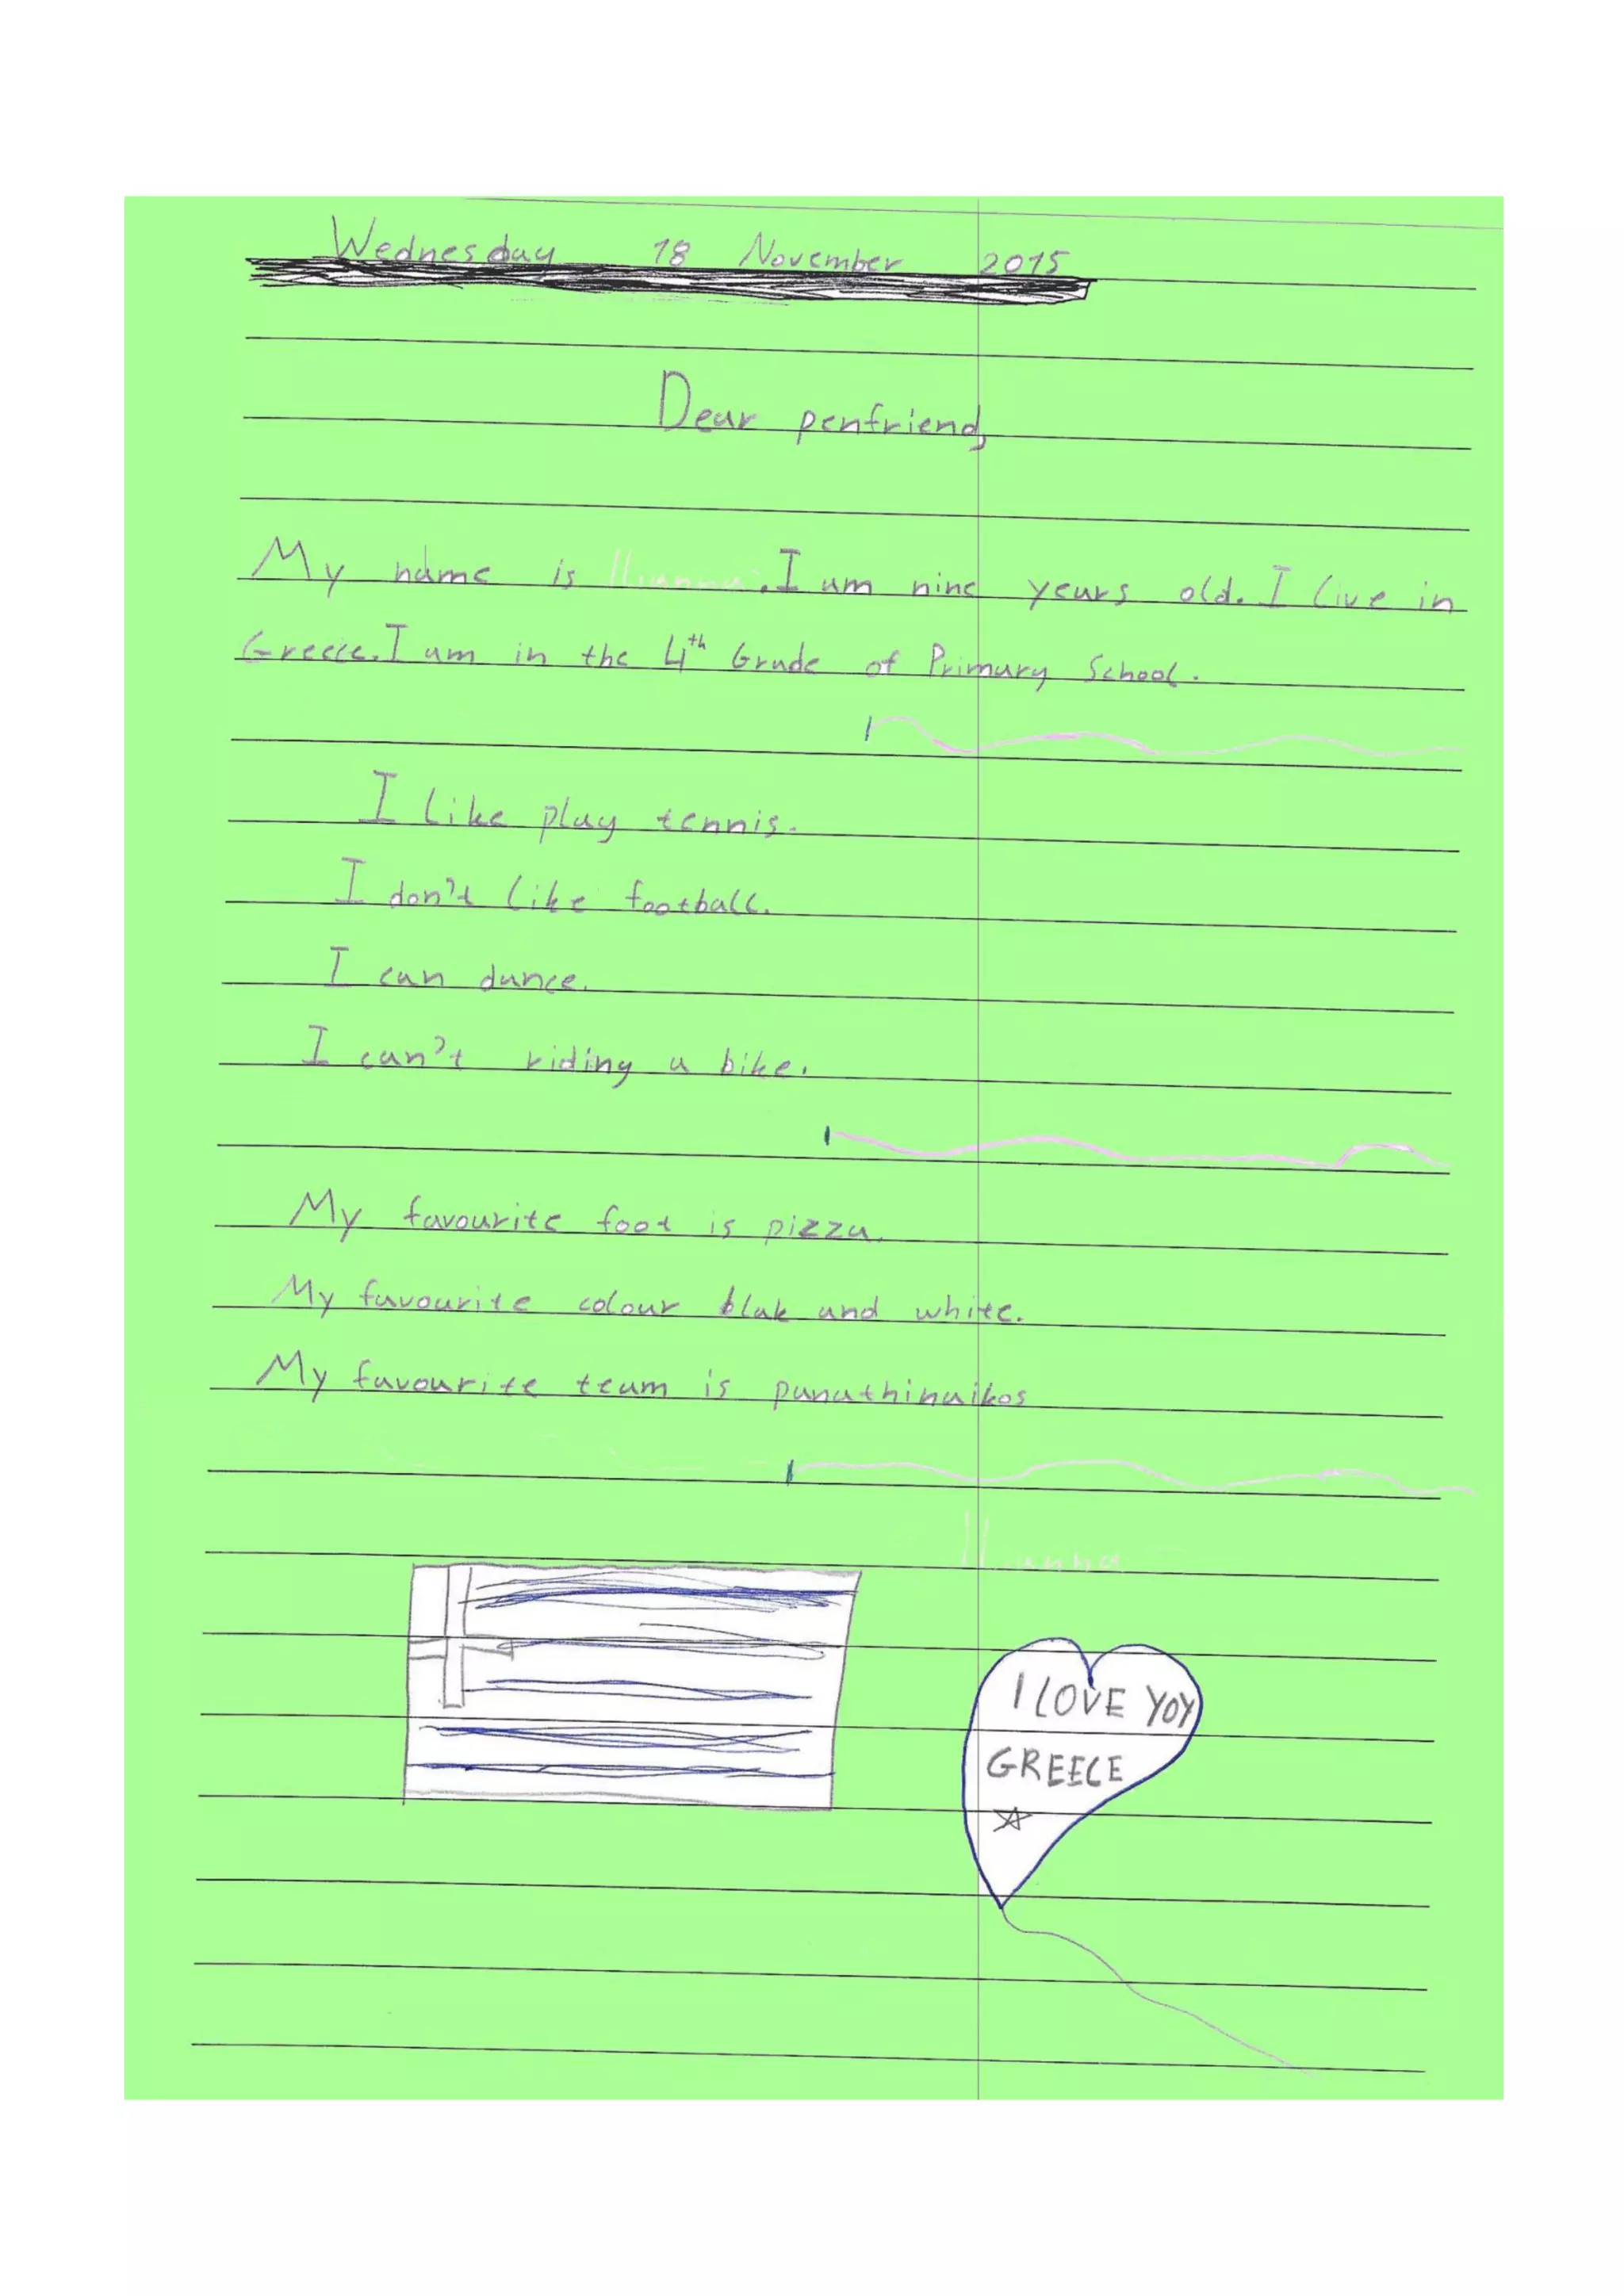 Wednesday 18 November 2015
Dear penfriend,
My name is Ilianna. I am nine years old. I live in
Greece. I am in the 4th Grade of Primary School.
I like play tennis.
I don't like football.
I can dance.
I can't riding a bike.
My favourite foot is pizza.
My favourite colour blak and white.
My favourite team is panathinaikos
Ilianna
I LOVE YOY
GREECE